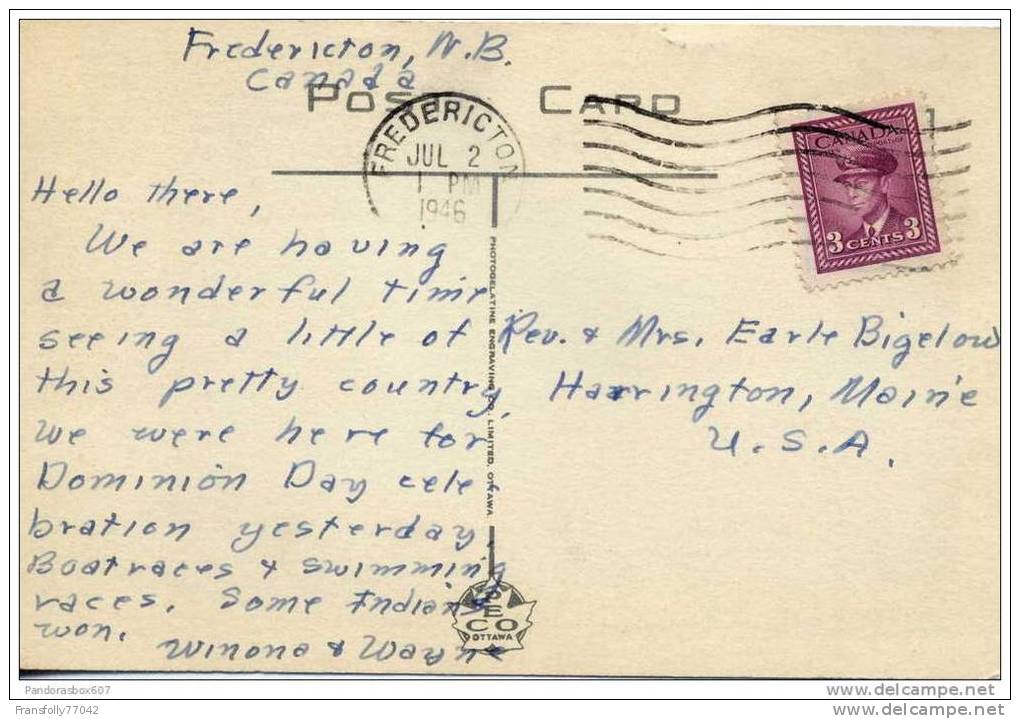 Fredericton, N.B.
Canada
POST CARD
FREDERICTON
JUL 2
1 PM
1946
CANADA
3 CENTS 3
Hello there,
We are having
a wonderful time
seeing a little of
this pretty country.
We were here for
Dominion Day cele-
bration yesterday.
Boatraces & swimming
races. Some Indians
won.
Winona & Wayne
PHOTOGELATINE ENGRAVING CO. LIMITED, OTTAWA.
PECO
OTTAWA
Rev. & Mrs. Earle Bigelow
Harrington, Maine
U.S.A.
Pandorasbox607
Transfolly77042
www.delcampe.net
www.delcampe.net